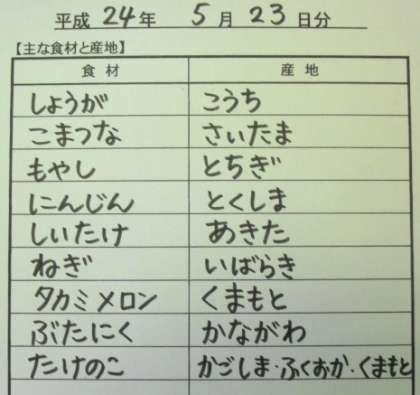 平成 24年 5月 23日分
【主な食材と産地】
食材 産地
しょうが こうち
こまつな さいたま
もやし とちぎ
にんじん とくしま
しいたけ あきた
ねぎ いばらき
タカミメロン くまもと
ぶたにく かながわ
たけのこ かごしま・ふくおか・くまもと